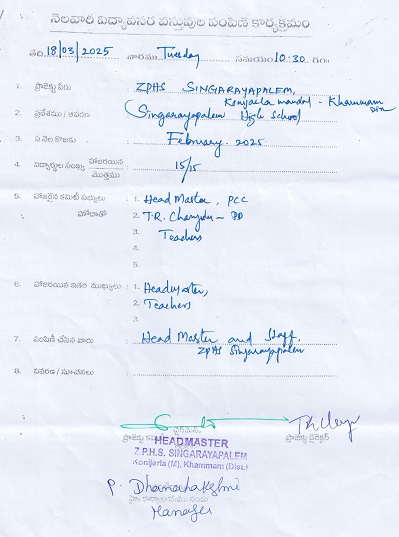 నెలవారీ విద్యావసర వస్తువుల పంపిణీ కార్యక్రమం
తేది. 18/03/2025 వారము Tuesday సమయం 10:30 గం॥
1. ప్రాజెక్టు పేరు : ZPHS SINGARAYAPALEM,
Konijerla mandal - Khammam Dist
2. ప్రదేశము / ఆవరణ : Singarayapalem High School
3. ఏ నెల కొఱకు : February. 2025
4. విద్యార్థుల సంఖ్య హాజరయిన / మొత్తము : 15/15
5. హాజరైన కమిటీ సభ్యులు : 1. Head Master, PCC
హోదాతో 2. T.R. - PD
3. Teachers
4.
5.
6. హాజరయిన ఇతర ముఖ్యులు : 1. Headmaster,
2. Teachers
3.
7. పంపిణీ చేసిన వారు : Head Master and Staff,
ZPHS Singarayapalem
8. వివరణ / సూచనలు :
ఛైర్మన్
ప్రాజెక్టు ప్రాజెక్టు డైరెక్టర్
HEADMASTER
Z.P.H.S. SINGARAYAPALEM
Konijerla (M), Khammam (Dist.)
P. Dhanalakshmi
Manager